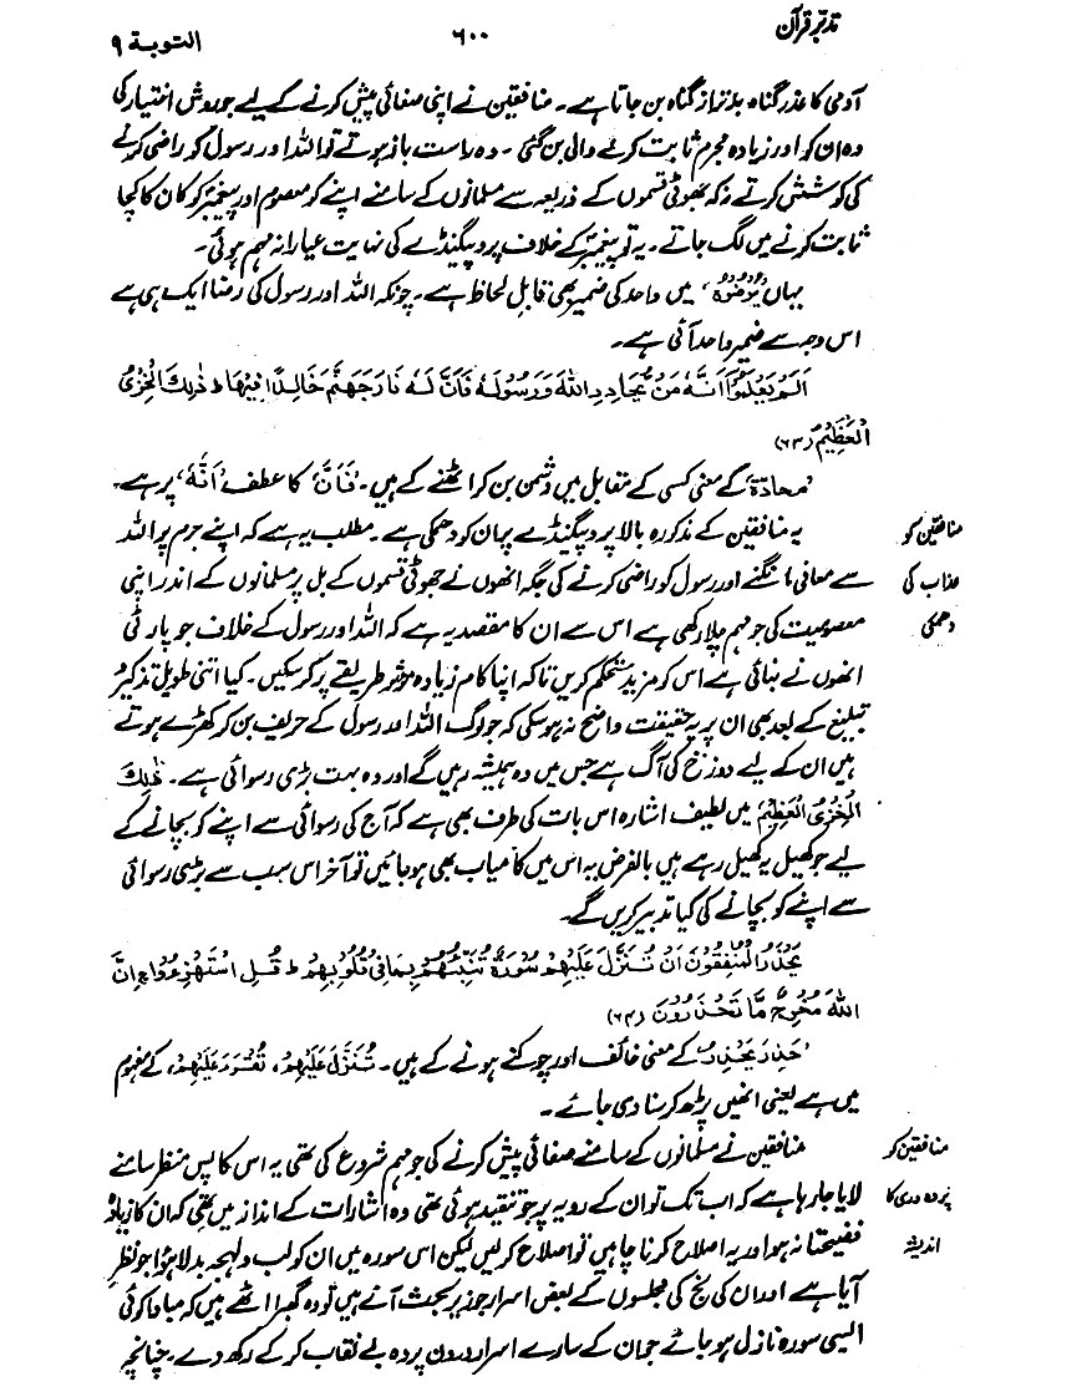 تدبّر قرآن ۶۰۰ التوبة ۹
آدمی کا عذر گناہ بدتر از گناہ بن جاتا ہے۔ منافقین نے اپنی صفائی پیش کرنے کے لیے جو روش اختیار کی
وہ ان کو اور زیادہ مجرم ثابت کرنے والی بن گئی۔ وہ راست باز ہوتے تو اللہ اور رسول کو راضی کرنے
کی کوشش کرتے نہ کہ جھوٹی قسموں کے ذریعہ سے مسلمانوں کے سامنے اپنے کو معصوم اور پیغمبرؐ کو کان کا کچا
ثابت کرنے میں لگ جاتے۔ یہ تو پیغمبرؐ کے خلاف پروپیگنڈے کی نہایت عیارانہ مہم ہوئی۔
یہاں 'یُرْضُوْہُ' میں واحد کی ضمیر بھی قابلِ لحاظ ہے۔ چونکہ اللہ اور رسول کی رضا ایک ہی ہے
اس وجہ سے ضمیر واحد آئی ہے۔
اَلَمْ یَعْلَمُوْٓا اَنَّہٗ مَنْ یُّحَادِدِ اللّٰہَ وَرَسُوْلَہٗ فَاَنَّ لَہٗ نَارَ جَھَنَّمَ خَالِدًا فِیْھَا ط ذٰلِکَ الْخِزْیُ
الْعَظِیْمُ (۶۳)
'محادّۃ' کے معنی کسی کے مقابل میں دشمن بن کر اٹھنے کے ہیں۔ 'فَاَنَّ' کا عطف 'اَنَّہٗ' پر ہے۔
منافقین کو یہ منافقین کے مذکورہ بالا پروپیگنڈے پر ان کو دھمکی ہے۔ مطلب یہ ہے کہ اپنے جرم پر اللہ
عذاب کی سے معافی مانگنے اور رسول کو راضی کرنے کی جگہ انھوں نے جھوٹی قسموں کے بل پر مسلمانوں کے اندر اپنی
دھمکی معصومیت کی جو مہم چلا رکھی ہے اس سے ان کا مقصد یہ ہے کہ اللہ اور رسول کے خلاف جو پارٹی
انھوں نے بنائی ہے اس کو مزید مستحکم کریں تاکہ اپنا کام زیادہ مؤثر طریقے پر کر سکیں۔ کیا اتنی طویل تذکیر و
تبلیغ کے بعد بھی ان پر یہ حقیقت واضح نہ ہو سکی کہ جو لوگ اللہ اور رسول کے حریف بن کر کھڑے ہوتے
ہیں ان کے لیے دوزخ کی آگ ہے جس میں وہ ہمیشہ رہیں گے اور وہ بہت بڑی رسوائی ہے۔ ذٰلِکَ
الْخِزْیُ الْعَظِیْمُ میں لطیف اشارہ اس بات کی طرف بھی ہے کہ آج کی رسوائی سے اپنے کو بچانے کے
لیے جو کھیل یہ کھیل رہے ہیں بالفرض یہ اس میں کامیاب بھی ہو جائیں تو آخر اس سب سے بڑی رسوائی
سے اپنے کو بچانے کی کیا تدبیر کریں گے۔
یَحْذَرُ الْمُنٰفِقُوْنَ اَنْ تُنَزَّلَ عَلَیْھِمْ سُوْرَۃٌ تُنَبِّئُھُمْ بِمَا فِیْ قُلُوْبِھِمْ ط قُلِ اسْتَھْزِءُوْا ج اِنَّ
اللّٰہَ مُخْرِجٌ مَّا تَحْذَرُوْنَ (۶۴)
'حَذِرَ یَحْذَرُ' کے معنی خائف اور چوکنے ہونے کے ہیں۔ تُنَزَّلَ عَلَیْھِمْ، تُقْرَءَ عَلَیْھِمْ، کے مفہوم
میں ہے یعنی انھیں پڑھ کر سنا دی جائے۔
منافقین کو منافقین نے مسلمانوں کے سامنے صفائی پیش کرنے کی جو مہم شروع کی تھی یہ اس کا پس منظر سامنے
پردہ دری کا لایا جا رہا ہے کہ اب تک تو ان کے رویہ پر جو تنقید ہوئی تھی وہ اشارات کے انداز میں تھی کہ ان کا زیادہ
اندیشہ فضیحتا نہ ہو اور یہ اصلاح کرنا چاہیں تو اصلاح کر لیں لیکن اس سورہ میں ان کو لب و لہجہ بدلا ہوا جو نظر
آیا ہے اور ان کی نج کی مجلسوں کے بعض اسرار جو زیر بحث آئے ہیں تو وہ گھبرا اٹھے ہیں کہ مبادا کوئی
ایسی سورہ نازل ہو جائے جو ان کے سارے اسرار درون پردہ بے نقاب کر کے رکھ دے۔ چنانچہ